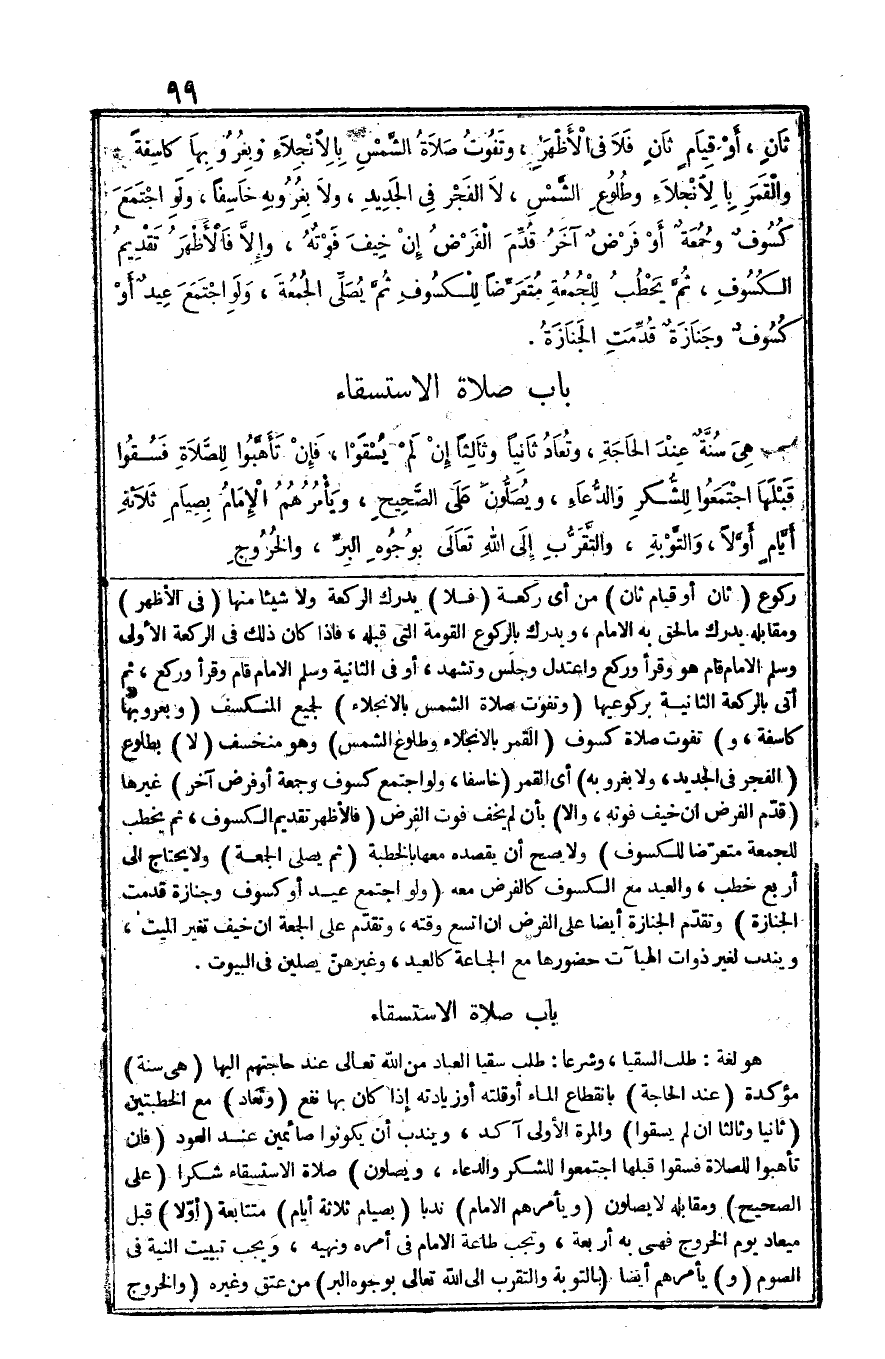 ٩٩
ثَانٍ ، أَوْ قِيَامٍ ثَانٍ فَلَا فِى الْأَظْهَرِ ، وَتَفُوتُ صَلَاةُ الشَّمْسِ بِالِانْجِلَاءِ وَبِغُرُوبِهَا كَاسِفَةً
وَالْقَمَرِ بِالِانْجِلَاءِ وَطُلُوعِ الشَّمْسِ ، لَا الفَجْرِ فِى الْجَدِيدِ ، وَلَا بِغُرُوبِهِ خَاسِفًا ، وَلَوِ اجْتَمَعَ
كُسُوفٌ وَجُمُعَةٌ أَوْ فَرْضٌ آخَرُ قُدِّمَ الْفَرْضُ إِنْ خِيفَ فَوْتُهُ ، وَإِلَّا فَالْأَظْهَرُ تَقْدِيمُ
الْكُسُوفِ ، ثُمَّ يَخْطُبُ لِلْجُمُعَةِ مُتَعَرِّضًا لِلْكُسُوفِ ثُمَّ يُصَلِّى الْجُمُعَةَ ، وَلَوِ اجْتَمَعَ عِيدٌ أَوْ
كُسُوفٌ وَجَنَازَةٌ قُدِّمَتِ الْجَنَازَةُ .
باب صلاة الاستسقاء
هِىَ سُنَّةٌ عِنْدَ الْحَاجَةِ ، وَتُعَادُ ثَانِيًا وَثَالِثًا إِنْ لَمْ يُسْقَوْا ، فَإِنْ تَأَهَّبُوا لِلصَّلَاةِ فَسُقُوا
قَبْلَهَا اجْتَمَعُوا لِلشُّكْرِ وَالدُّعَاءِ ، وَيُصَلُّونَ عَلَى الصَّحِيحِ ، وَيَأْمُرُهُمُ الْإِمَامُ بِصِيَامِ ثَلَاثَةِ
أَيَّامٍ أَوَّلًا ، وَالتَّوْبَةِ ، وَالتَّقَرُّبِ إِلَى اللهِ تَعَالَى بِوُجُوهِ الْبِرِّ ، وَالْخُرُوجِ
ركوع ( ثان أو قيام ثان ) من أى ركعة ( فلا ) يدرك الركعة ولا شيئا منها ( فى الأظهر )
ومقابله يدرك مالحق به الامام ، ويدرك بالركوع القومة التى قبله ، فاذا كان ذلك فى الركعة الأولى
وسلم الامام قام هو وقرأ وركع واعتدل وجلس وتشهد ، أو فى الثانية وسلم الامام قام وقرأ وركع ، ثم
أتى بالركعة الثانية بركوعيها ( وتفوت صلاة الشمس بالانجلاء ) لجيع المنكسف ( و بغروبها
كاسفة ، و ) تفوت صلاة كسوف ( القمر بالانجلاء وطلوع الشمس ) وهو منخسف ( لا ) بطلوع
( الفجر فى الجديد ، ولا بغروبه ) أى القمر ( خاسفا ، ولو اجتمع كسوف وجمعة أوفرض آخر ) غيرها
( قدّم الفرض ان خيف فوته ، والا ) بأن لم يخف فوت الفرض ( فالأظهر تقديم الكسوف ، ثم يخطب
للجمعة متعرّضا للكسوف ) ولا يصح أن يقصده معها بالخطبة ( ثم يصلى الجعة ) ولا يحتاج الى
أربع خطب ، والعيد مع الكسوف كالفرض معه ( ولو اجتمع عيد أو كسوف وجنازة قدمت
الجنازة ) وتقدّم الجنازة أيضا على الفرض ان اتسع وقته ، وتقدّم على الجعة ان خيف تغير الميت ،
ويندب لغير ذوات الهيآت حضورها مع الجاعة كالعيد ، وغيرهنّ يصلين فى البيوت .
باب صلاة الاستسقاء
هو لغة : طلب السقيا ، وشرعا : طلب سقيا العباد من الله تعالى عند حاجتهم اليها ( هى سنة )
مؤكدة ( عند الحاجة ) بانقطاع الماء أوقلته أوزيادته إذا كان بها نفع ( وتعاد ) مع الخطبتين
( ثانيا وثالثا ان لم يسقوا ) والمرة الأولى آكد ، ويندب أن يكونوا صائمين عند العود ( فان
تأهبوا للصلاة فسقوا قبلها اجتمعوا للشكر والدعاء ، ويصلون ) صلاة الاستسقاء شكرا ( على
الصحيح ) ومقابله لايصلون ( ويأمرهم الامام ) ندبا ( بصيام ثلاثة أيام ) متتابعة ( أوّلا ) قبل
ميعاد يوم الخروج فهى به أربعة ، وتجب طاعة الامام فى أمره ونهيه ، ويجب تبييت النية فى
الصوم ( و ) يأمرهم أيضا ( بالتوبة والتقرب الى الله تعالى بوجوه البر ) من عتق وغيره ( والخروج